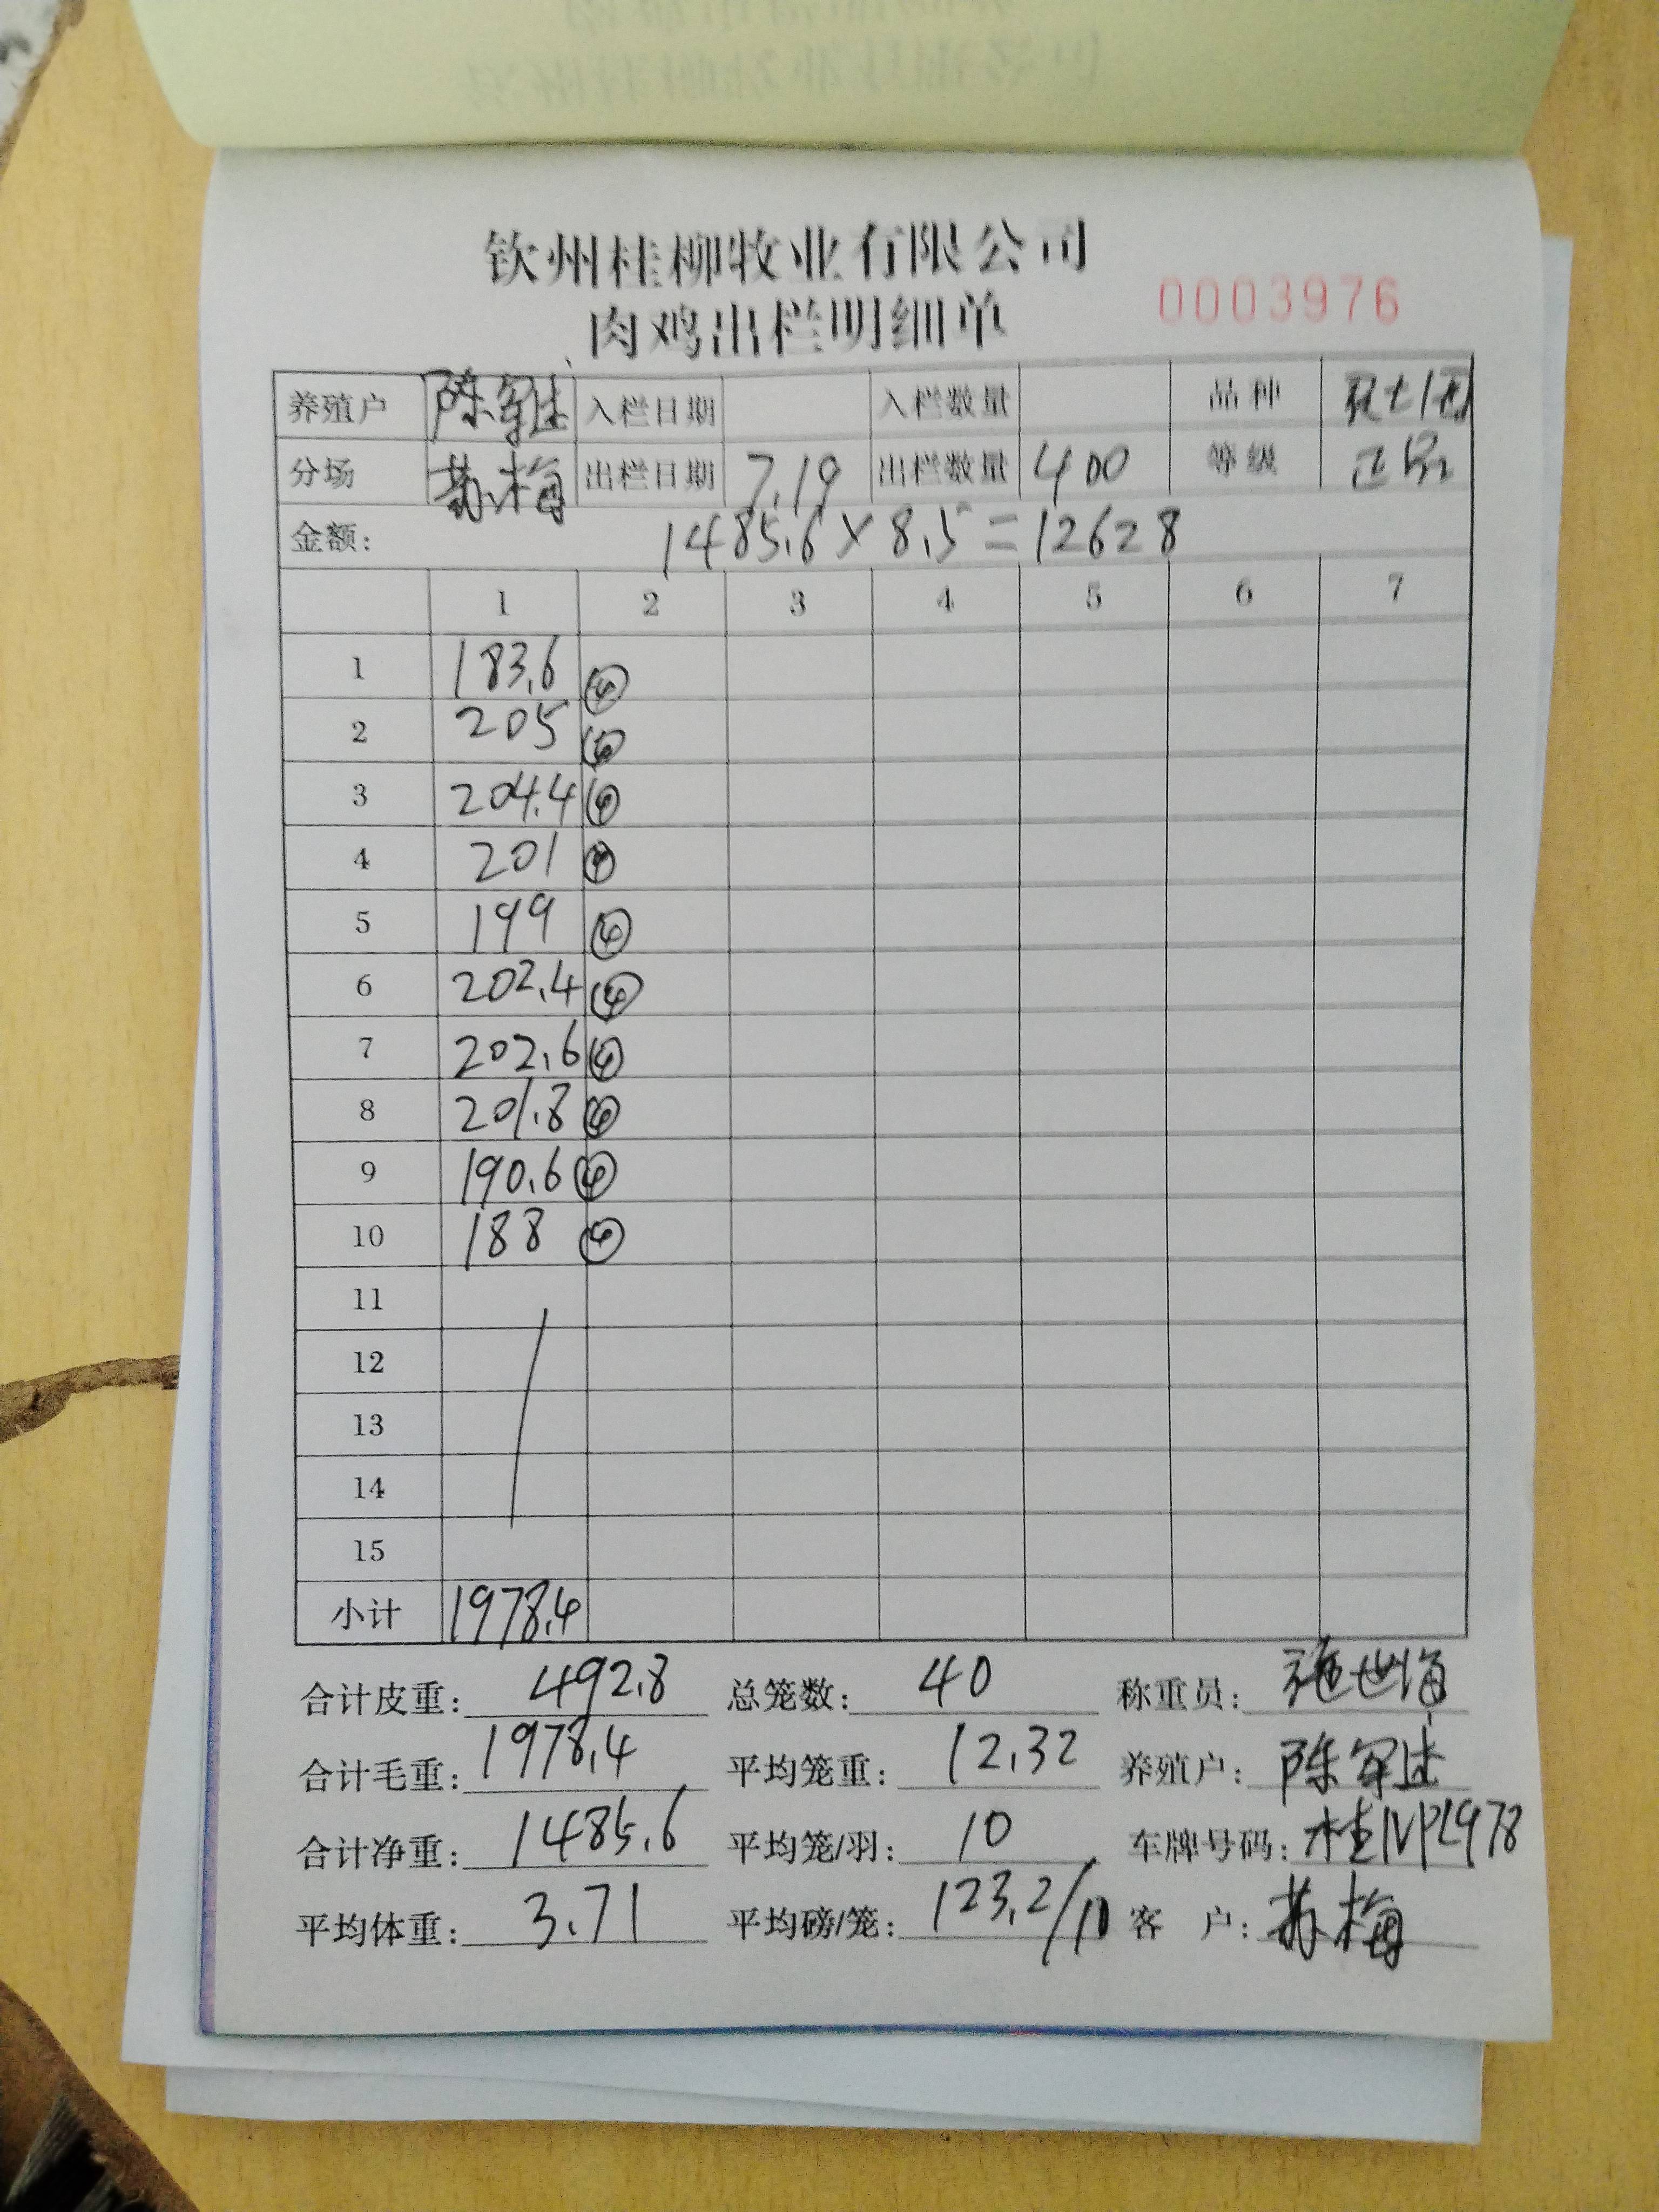 钦州桂柳牧业有限公司
肉鸡出栏明细单
0003976
养殖户 陈军 入栏日期 入栏数量 品种
分场 苏梅 出栏日期 7.19 出栏数量 400 等级 正品
金额: 1485.6×8.5=12628
1 2 3 4 5 6 7
1 183.6 ④
2 205 ④
3 204.4 ④
4 201 ④
5 199 ④
6 202.4 ④
7 202.6 ④
8 201.8 ④
9 190.6 ④
10 188 ④
11
12
13
14
15
小计 1978.4
合计皮重: 492.8 总笼数: 40 称重员: 施世海
合计毛重: 1978.4 平均笼重: 12.32 养殖户: 陈军
合计净重: 1485.6 平均笼/羽: 10 车牌号码: 桂
平均体重: 3.71 平均磅/笼: 123.2/10 客 户: 苏梅